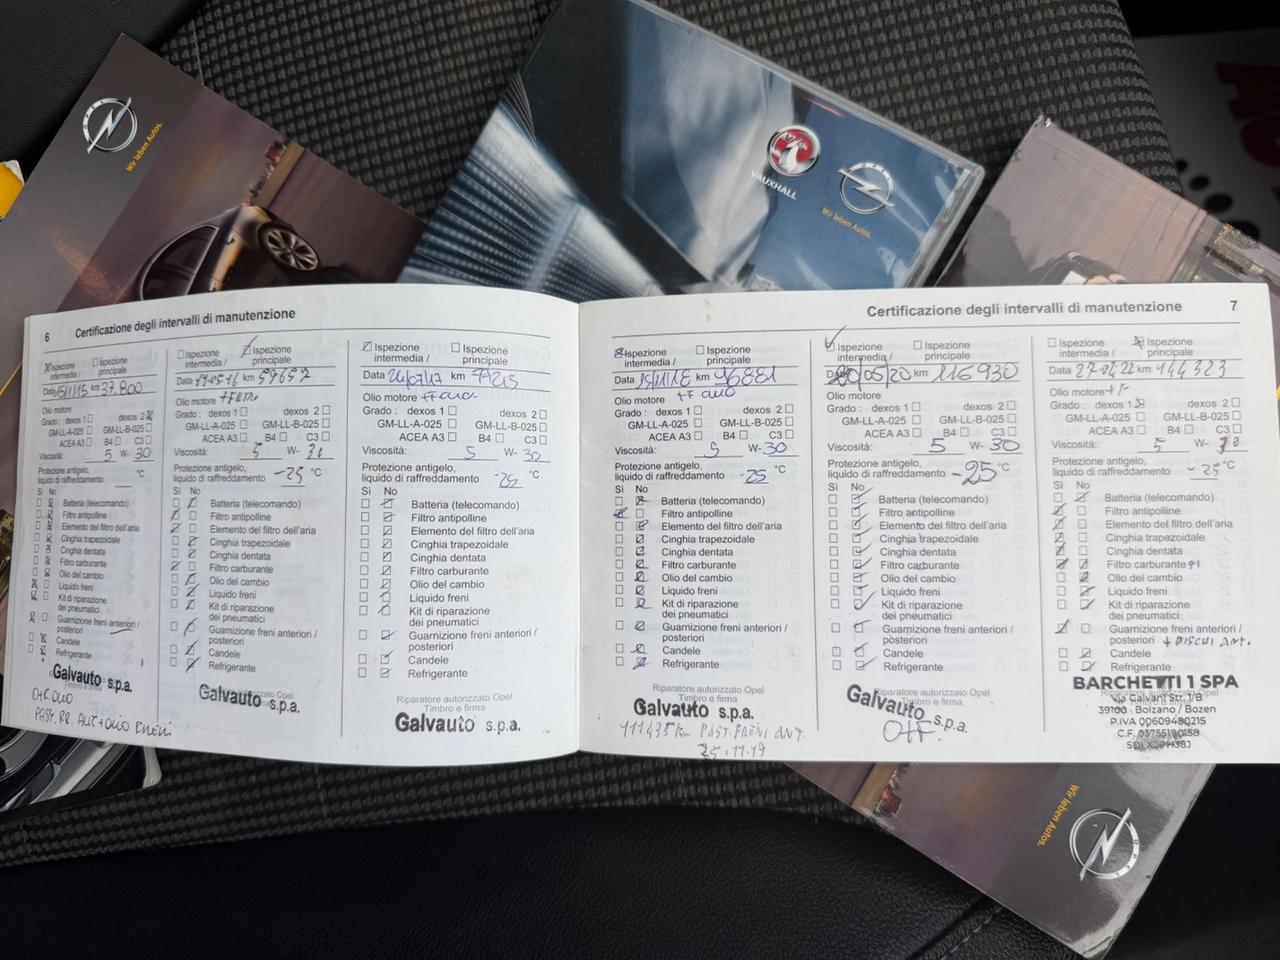 OPEL
Wir leben Autos.
VAUXHALL
OPEL
Wir leben Autos.
6 Certificazione degli intervalli di manutenzione
Ispezione intermedia / Ispezione principale
Data 15/11/15 km 37.800
Olio motore
Grado : dexos 1 dexos 2
GM-LL-A-025 GM-LL-B-025
ACEA A3 B4 C3
Viscosità: 5 W- 30
Protezione antigelo,
liquido di raffreddamento °C
Sì No
Batteria (telecomando)
Filtro antipolline
Elemento del filtro dell'aria
Cinghia trapezoidale
Cinghia dentata
Filtro carburante
Olio del cambio
Liquido freni
Kit di riparazione
dei pneumatici
Guarnizione freni anteriori /
posteriori
Candele
Refrigerante
Galvauto s.p.a.
Ispezione intermedia / Ispezione principale
Data km 59657
Olio motore + FILTRO
Grado : dexos 1 dexos 2
GM-LL-A-025 GM-LL-B-025
ACEA A3 B4 C3
Viscosità: 5 W- 30
Protezione antigelo,
liquido di raffreddamento -25 °C
Sì No
Batteria (telecomando)
Filtro antipolline
Elemento del filtro dell'aria
Cinghia trapezoidale
Cinghia dentata
Filtro carburante
Olio del cambio
Liquido freni
Kit di riparazione
dei pneumatici
Guarnizione freni anteriori /
posteriori
Candele
Refrigerante
Galvauto s.p.a.
Ispezione intermedia / Ispezione principale
Data 24/07/17 km
Olio motore
Grado : dexos 1 dexos 2
GM-LL-A-025 GM-LL-B-025
ACEA A3 B4 C3
Viscosità: 5 W- 30
Protezione antigelo,
liquido di raffreddamento -25 °C
Sì No
Batteria (telecomando)
Filtro antipolline
Elemento del filtro dell'aria
Cinghia trapezoidale
Cinghia dentata
Filtro carburante
Olio del cambio
Liquido freni
Kit di riparazione
dei pneumatici
Guarnizione freni anteriori /
posteriori
Candele
Refrigerante
Riparatore autorizzato Opel
Timbro e firma
Galvauto s.p.a.
Certificazione degli intervalli di manutenzione 7
Ispezione intermedia / Ispezione principale
Data 15/11/18 km 96881
Olio motore
Grado : dexos 1 dexos 2
GM-LL-A-025 GM-LL-B-025
ACEA A3 B4 C3
Viscosità: 5 W- 30
Protezione antigelo,
liquido di raffreddamento -25 °C
Sì No
Batteria (telecomando)
Filtro antipolline
Elemento del filtro dell'aria
Cinghia trapezoidale
Cinghia dentata
Filtro carburante
Olio del cambio
Liquido freni
Kit di riparazione
dei pneumatici
Guarnizione freni anteriori /
posteriori
Candele
Refrigerante
Riparatore autorizzato Opel
Timbro e firma
Galvauto s.p.a.
111435 km PAST. FRENI ANT.
25.11.19
Ispezione intermedia / Ispezione principale
/05/20 km 116930
Olio motore
Grado : dexos 1 dexos 2
GM-LL-A-025 GM-LL-B-025
ACEA A3 B4 C3
Viscosità: 5 W- 30
Protezione antigelo,
liquido di raffreddamento -25 °C
Sì No
Batteria (telecomando)
Filtro antipolline
Elemento del filtro dell'aria
Cinghia trapezoidale
Cinghia dentata
Filtro carburante
Olio del cambio
Liquido freni
Kit di riparazione
dei pneumatici
Guarnizione freni anteriori /
posteriori
Candele
Refrigerante
Galvauto s.p.a.
O+F.
Ispezione intermedia / Ispezione principale
Data 27.04.22 km 144323
Olio motore + F
Grado : dexos 1 dexos 2
GM-LL-A-025 GM-LL-B-025
ACEA A3 B4 C3
Viscosità: 5 W- 30
Protezione antigelo,
liquido di raffreddamento -25 °C
Sì No
Batteria (telecomando)
Filtro antipolline
Elemento del filtro dell'aria
Cinghia trapezoidale
Cinghia dentata
Filtro carburante
Olio del cambio
Liquido freni
Kit di riparazione
dei pneumatici
Guarnizione freni anteriori /
posteriori + DISCHI ANT.
Candele
Refrigerante
BARCHETTI 1 SPA
Via Galvani Str. 1/B
39100 - Bolzano / Bozen
P.IVA 00609480215
Wir leben Autos.
OPEL